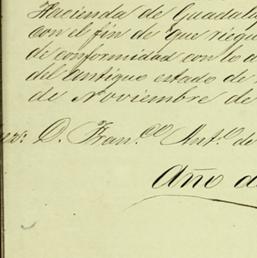 Hacienda de Guadala
con el fin de que rieque
de conformidad con lo
del antiguo estado de
de Noviembre de
D. Fran.co Ant.o de
Año d